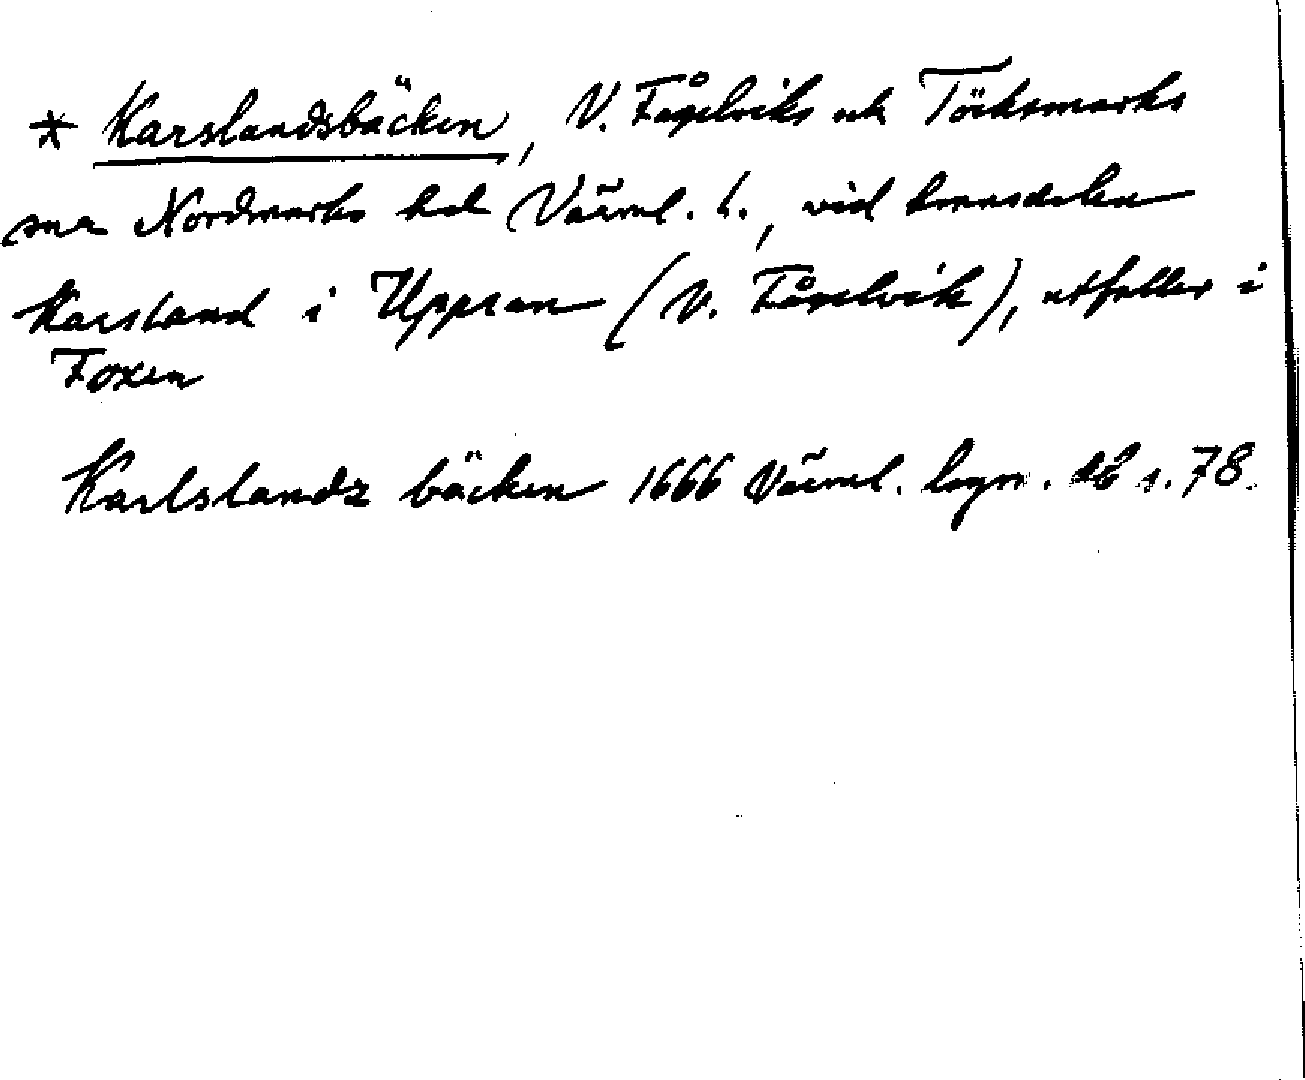 * Karslandsbäcken, V. Fågelviks och Töcksmarks
snr Nordmarks hd Värml. l., vid hemsdelen
Karsland i Uppsan (V. Fågelvik), utfaller i
Foxen
Karlslandz bäcken 1666 Värml. lagn. db s. 78.